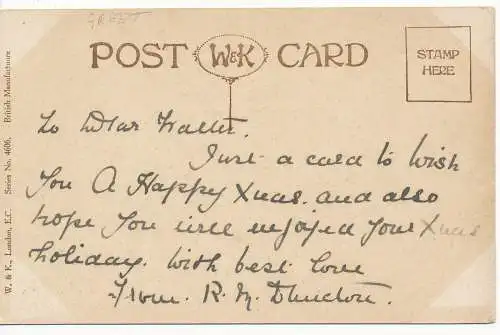 POST W&K CARD
STAMP
HERE
W. & K., London, E.C. Series No. 4606. British Manufacture
To Dear Walter.
Just a card to wish
you A Happy Xmas. and also
hope you will enjoyed your Xmas
holiday. with best love
From. R. M.